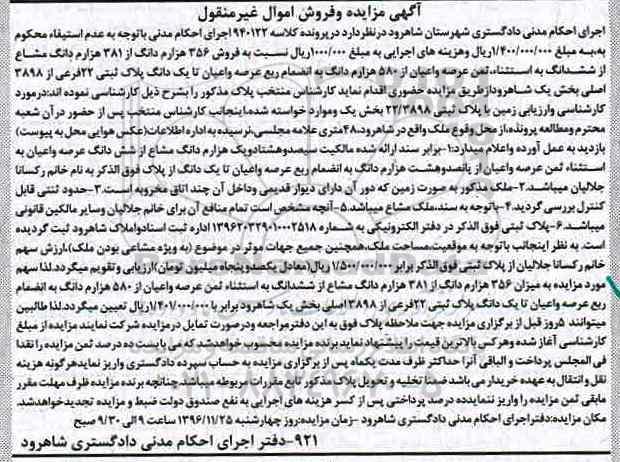 آگهی مزایده وفروش اموال غیرمنقول
اجرای احکام مدنی دادگستری شهرستان شاهرود درنظردارد درپرونده کلاسه ۹۴۰۱۲۲ اجرای احکام مدنی باتوجه به عدم استیفاء محکوم
به،به مبلغ ۱/۴۰۰/۰۰۰/۰۰۰ریال وهزینه های اجرایی به مبلغ ۱۰۰۰/۰۰۰ریال نسبت به فروش ۳۵۶ هزارم دانگ از ۳۸۱ هزارم دانگ مشاع
از ششدانگ به استثناء ثمن عرصه واعیان از ۵۸۰ هزارم دانگ به انضمام ربع عرصه واعیان تا یک دانگ پلاک ثبتی ۲۲فرعی از ۳۸۹۸
اصلی بخش یک شاهرودازطریق مزایده حضوری اقدام نماید کارشناس منتخب پلاک مذکور را بشرح ذیل کارشناسی نموده اند:درمورد
کارشناسی وارزیابی زمین با پلاک ثبتی ۲۲/۳۸۹۸ بخش یک وموارد خواسته شده،اینجانب کارشناس منتخب پس از حضور در آن شعبه
محترم ومطالعه پرونده،از محل وقوع ملک واقع در شاهرود،۴۸متری علامه مجلسی،نرسیده به اداره اطلاعات(عکس هوایی محل به پیوست)
بازدید به عمل آورده واعلام میدارد:۱-برابر سند ارائه شده مالکیت سیصدوهشتادویک هزارم دانگ مشاع از شش دانگ عرصه واعیان به
استثناء ثمن عرصه واعیان از پانصدوهشت هزارم دانگ به انضمام ربع عرصه واعیان تا یک دانگ از پلاک فوق الذکر به نام خانم رکسانا
جلالیان میباشد.۲-ملک مذکور به صورت زمین که دور آن دارای دیوار قدیمی وداخل آن چند اتاق مخروبه است.۳-حدود ثنتی قابل
کنترل بررسی گردید.۴-باتوجه به سند،ملک مشاع میباشد.۵-آنچه مشخص است تمام منافع آن برای خانم جلالیان وسایر مالکین قانونی
میباشد.۶-پلاک ثبتی فوق الذکر در دفتر الکترونیکی به شماره ۱۳۹۶۲۰۳۲۹۰۱۰۰۰۲۵۱۸ اداره ثبت اسنادواملاک شاهرود ثبت گردیده
است. به نظر اینجانب باتوجه به موقعیت،مساحت ملک،همچنین جمیع جهات موثر در موضوع (به ویژه مشاعی بودن ملک)،ارزش سهم
خانم رکسانا جلالیان از پلاک ثبتی فوق الذکر برابر ۱/۵۰۰/۰۰۰/۰۰۰ ریال(معادل یکصدوپنجاه میلیون تومان)ارزیابی و تقویم میگردد.لذا سهم
مورد مزایده به میزان ۳۵۶ هزارم دانگ از ۳۸۱ هزارم دانگ مشاع از ششدانگ به استثناء ثمن عرصه واعیان از ۵۸۰ هزارم دانگ به انضمام
ربع عرصه واعیان تا یک دانگ پلاک ثبتی ۲۲فرعی از ۳۸۹۸ اصلی بخش یک شاهرود برابر با ۱/۴۰۱/۰۰۰/۰۰۰ریال تعیین میگردد.لذا طالبین
میتوانند ۵روز قبل از برگزاری مزایده جهت ملاحظه پلاک فوق به این دفترمراجعه ودرصورت تمایل درمزایده شرکت نمایند مزایده از مبلغ
کارشناسی آغاز شده وهرکس بالاترین قیمت را پیشنهاد نماید برنده مزایده محسوب خواهدشد که می بایست ده درصد ثمن مزایده را نقدا
فی المجلس پرداخت و الباقی آنرا حداکثر ظرف مدت یکماه پس از برگزاری مزایده به حساب سپرده دادگستری واریز نماید هرگونه هزینه
نقل وانتقال به عهده خریدار می باشد ضمنا تخلیه و تحویل پلاک مذکور تابع مقررات مربوطه میباشد.چنانچه برنده مزایده ظرف مهلت مقرر
مابقی ثمن مزایده را واریز ننماید ده درصد پرداختی پس از کسر هزینه های اجرایی به نفع صندوق دولت ضبط و مزایده تجدیدخواهدشد.
مکان مزایده:دفتراجرای احکام مدنی دادگستری شاهرود -زمان مزایده:روز چهارشنبه ۱۳۹۶/۱۱/۲۵ ساعت ۹ الی ۹/۳۰ صبح
۹۲۱-دفتر اجرای احکام مدنی دادگستری شاهرود